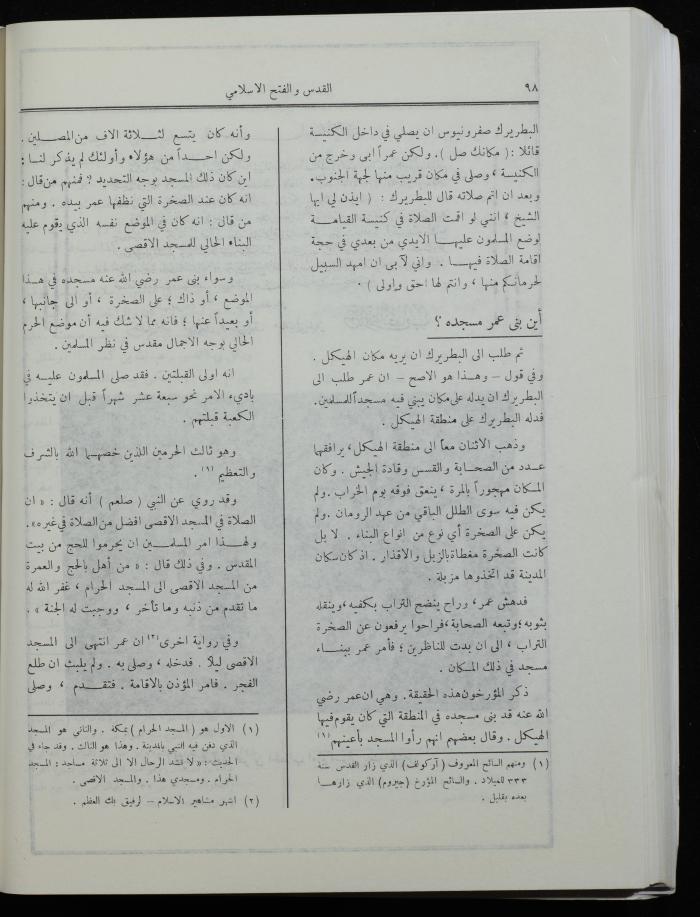 ٩٨
القدس والفتح الاسلامي
البطريرك صفرونيوس ان يصلي في داخل الكنيسة
قائلا : ( مكانك صل ) . ولكن عمراً ابى وخرج من
الكنيسة ، وصلى في مكان قريب منها لجهة الجنوب .
وبعد ان اتم صلاته قال للبطريرك : ( ايذن لي ايها
الشيخ ، انني لو اقمت الصلاة في كنيسة القيامـة
لوضع المسلمون عليهـا الايدي من بعدي في حجة
اقامة الصلاة فيهـا . واني لآ بى ان امهد السبيل
لحرمانكم منها ، وانتم لها احق واولى ) .
أين بنى عمر مسجده ؟
ثم طلب الى البطريرك ان يريه مكان الهيكل .
وفي قول – وهـذا هو الاصح – ان عمر طلب الى
البطريرك ان يدله على مكان يبني فيه مسجداً للمسلمين.
فدله البطريرك على منطقة الهيكل .
وذهب الاثنان معاً الى منطقة الهيكل ، يرافقها
عـدد من الصحـابة والقسس وقادة الجيش . وكان
المـكان مهجوراً بالمرة ، ينعق فوقه بوم الخراب . ولم
يكن فيه سوى الطلل الباقي من عهـد الرومان . ولم
يكن على الصخرة أي نوع من انواع البناء . لا بل
كانت الصخرة مغطاة بالزبل والاقذار . اذ كان سكان
المدينة قد اتخذوها مزبلة .
فدهش عمر، وراح ينضح التراب بكفيه، وينقله
بثوبه؛ وتبعه الصحابة، فراحوا يرفعون عن الصخرة
التراب ، الى ان بدت للناظرين ؛ فأمر عمر ببنـاء
مسجد في ذلك المـكان .
ذكر المؤرخون هذه الحقيقة . وهي ان عمر رضي
الله عنه قد بنى مسجده في المنطقة التي كان يقوم فيها
الهيكل . وقال بعضهم انهم رأوا المسجد بأعينهم (١)
(١) ومنهم السائح المعروف ( آركولف) الذي زار القدس سنة
٣٣٣ للميلاد . والسائح المؤرخ (جيروم) الذي زارهـا
بعده بقليل .
وأنه كان يتسع لثـلاثة الاف من المصـلين .
ولكن احـداً من هؤلاء وأولئك لم يذكر لنـا :
اين كان ذلك المسجد بوجه التحديد ؟ فمنهم من قال :
انه كان عند الصخرة التي نظفها عمر بيده . ومنهم
من قال : انه كان في الموضع نفسه الذي يقوم عليه
البناء الحالي للمسجد الاقصى .
وسواء بنى عمر رضي الله عنه مسجده في هـذا
الموضع ، أو ذاك ؛ على الصخرة ، أو الى جانبها ،
أو بعيداً عنها ؛ فانه مما لا شك فيه أن موضع الحرم
الحالي بوجه الاجمال مقدس في نظر المسلمين .
انه اولى القبلتين . فقد صلى المسلمون عليـه في
باديء الامر نحو سبعة عشر شهراً قبل ان يتخذوا
الكعبة قبلتهم .
وهو ثالث الحرمين اللذين خصهـما الله بالشرف
والتعظيم (١) .
وقد روي عن النبي ( صلعم ) أنه قال : « ان
الصلاة في المسجد الاقصى افضل من الصلاة في غيره».
ولهـذا امر المسلمـين ان يحرموا للحج من بيت
المقدس . وفي ذلك قال : « من أهل بالحج والعمرة
من المسجد الاقصى الى المسجد الحرام ، غفر الله له
ما تقدم من ذنبه وما تأخر ، ووجبت له الجنة » .
وفي رواية اخرى (٢) ان عمر انتهى الى المسجد
الاقصى ليلاً . فدخله ، وصلى به . ولم يلبث ان طلع
الفجر . فامر المؤذن بالاقامة . فتقـدم ، وصلى
(١) الاول هو ( المسجد الحرام ) بمكة . والثاني هو المسجد
الذي دفن فيه النبي بالمدينة . وهذا هو الثالث . وقد جاء في
الحديث : « لا تشد الرحال الا الى ثلاثة مساجد : المسجد
الحرام . ومسجدي هذا . والمسجد الاقصى .
(٢) اشهر مشاهير الاسلام – لرفيق بك العظم .